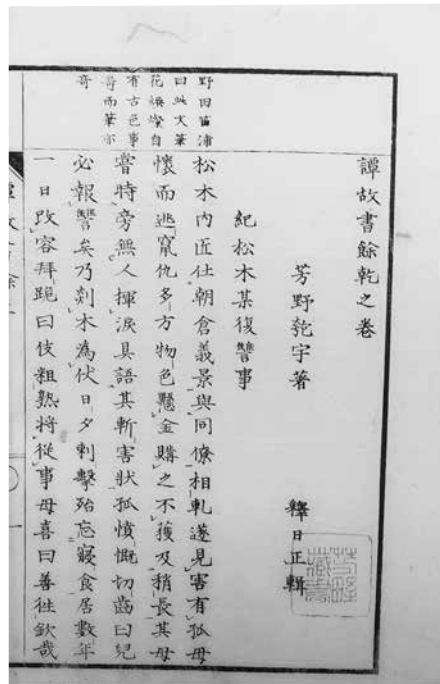 譚故書餘乾之卷
芳野匏宇著
釋日正輯
紀松木某復讐事
松木内匠仕朝倉義景與同僚相軋遂見害有孤母
懷而逃竄仇多方物色懸金購之不獲及稍長其母
嘗時旁無人揮淚具語其斬害狀孤憤慨切齒曰兒
必報讐矣乃剡木為伏日夕刺擊殆忘寢食居數年
一日改容拜跪曰伎粗熟將從事母喜曰善徃欽哉
野田笛浦
曰此文筆
花燦自
有古色事
奇而筆亦
奇